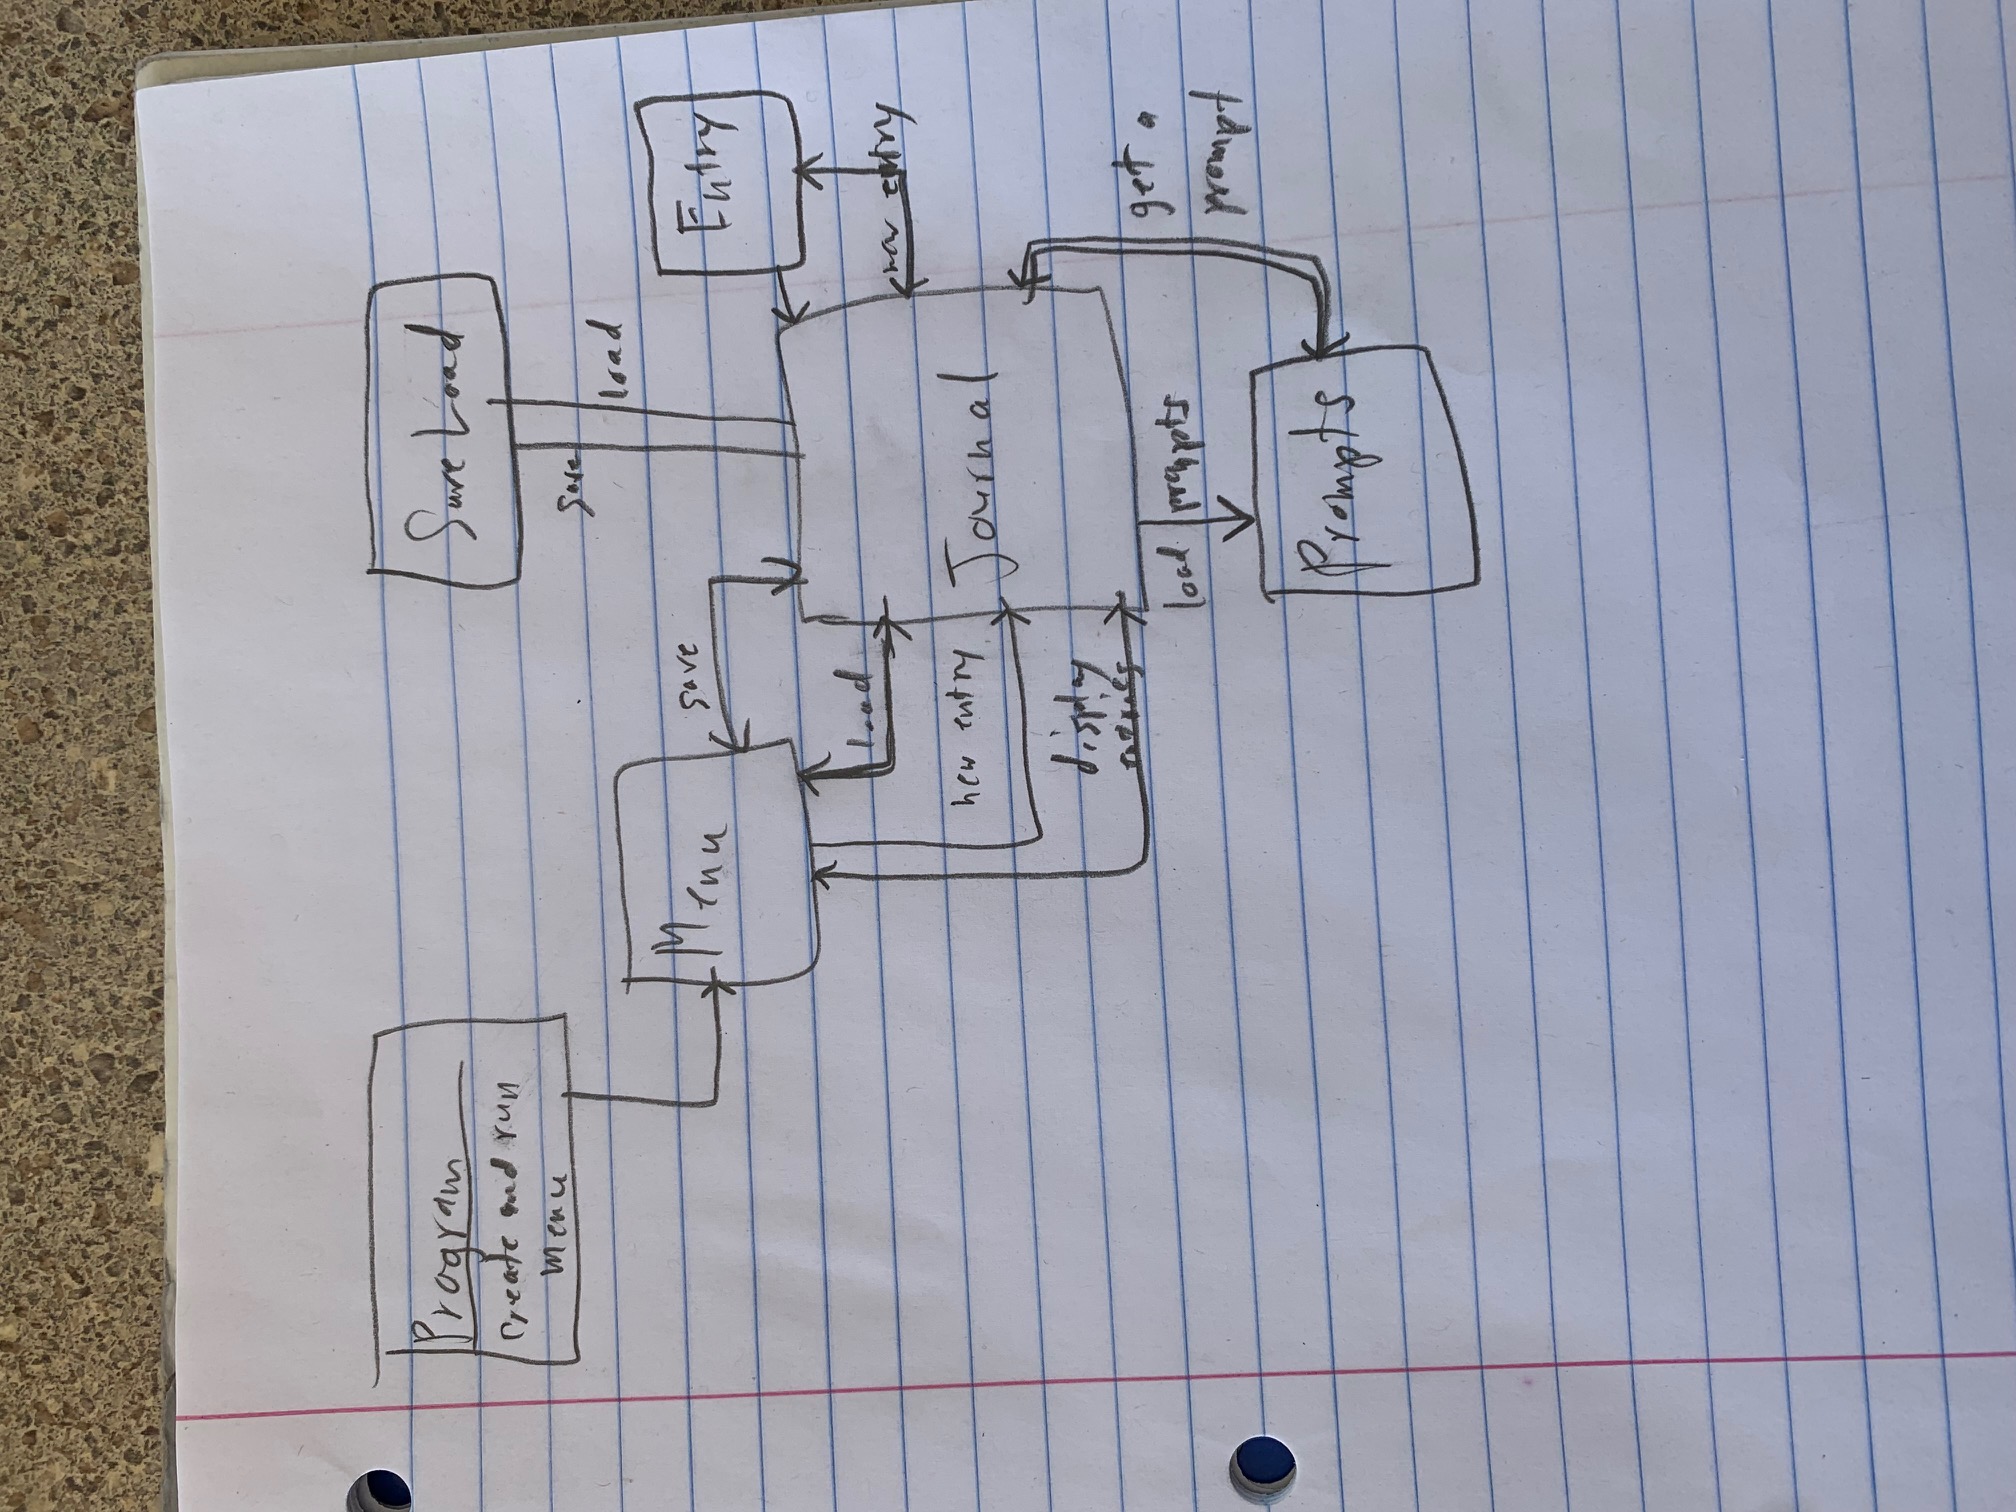 Program
create and run
menu
Save Load
save
load
Menu
save
Entry
load
new entry
new entry
Journal
display
entries
load prompts
get a
prompt
Prompts